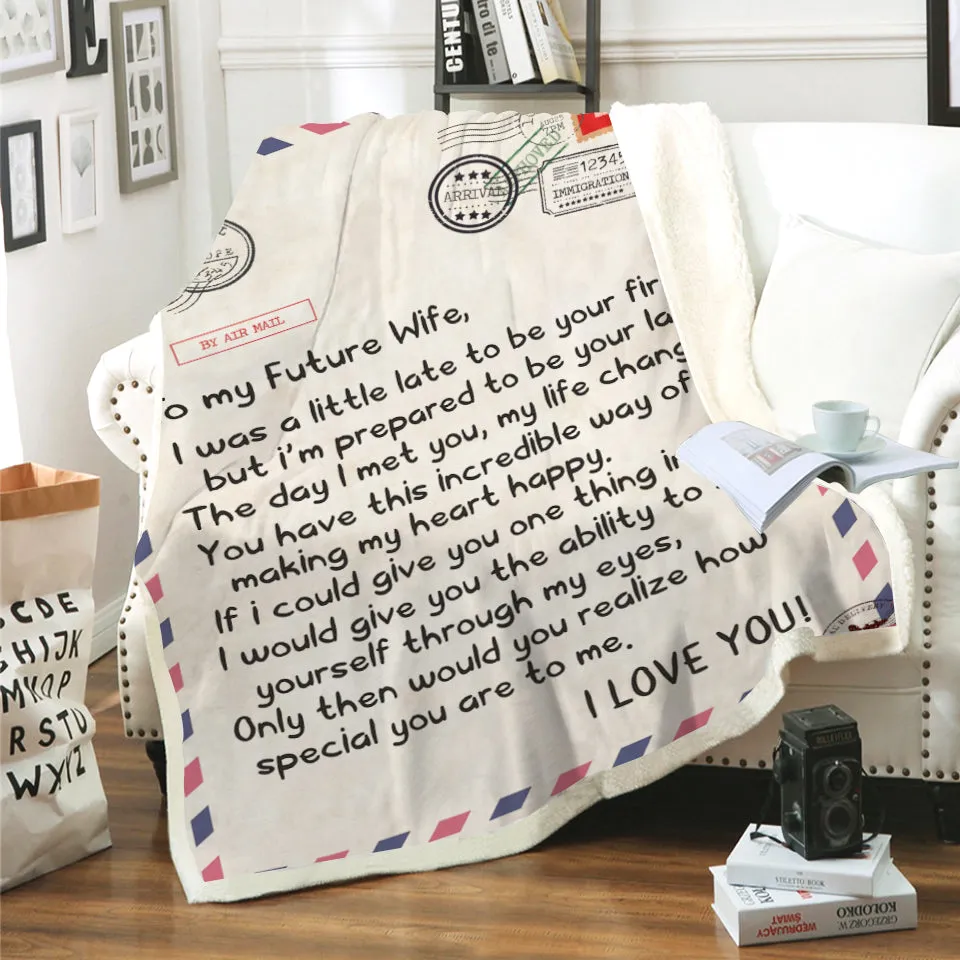 E
CENTU
ARRIVAL
12345
IMMIGRATION
BY AIR MAIL
o my Future Wife,
I was a little late to be your fir
but i'm prepared to be your la
The day I met you, my life chang
You have this incredible way of
making my heart happy.
If i could give you one thing in
I would give you the ability to
yourself through my eyes,
Only then would you realize how
special you are to me.
I LOVE YOU!
CDE
GHIJK
R STU
WXYZ
STILETTO BOOK
GRZEGORZ W.
KOŁODKO
WĘDRUJĄCY
ŚWIAT